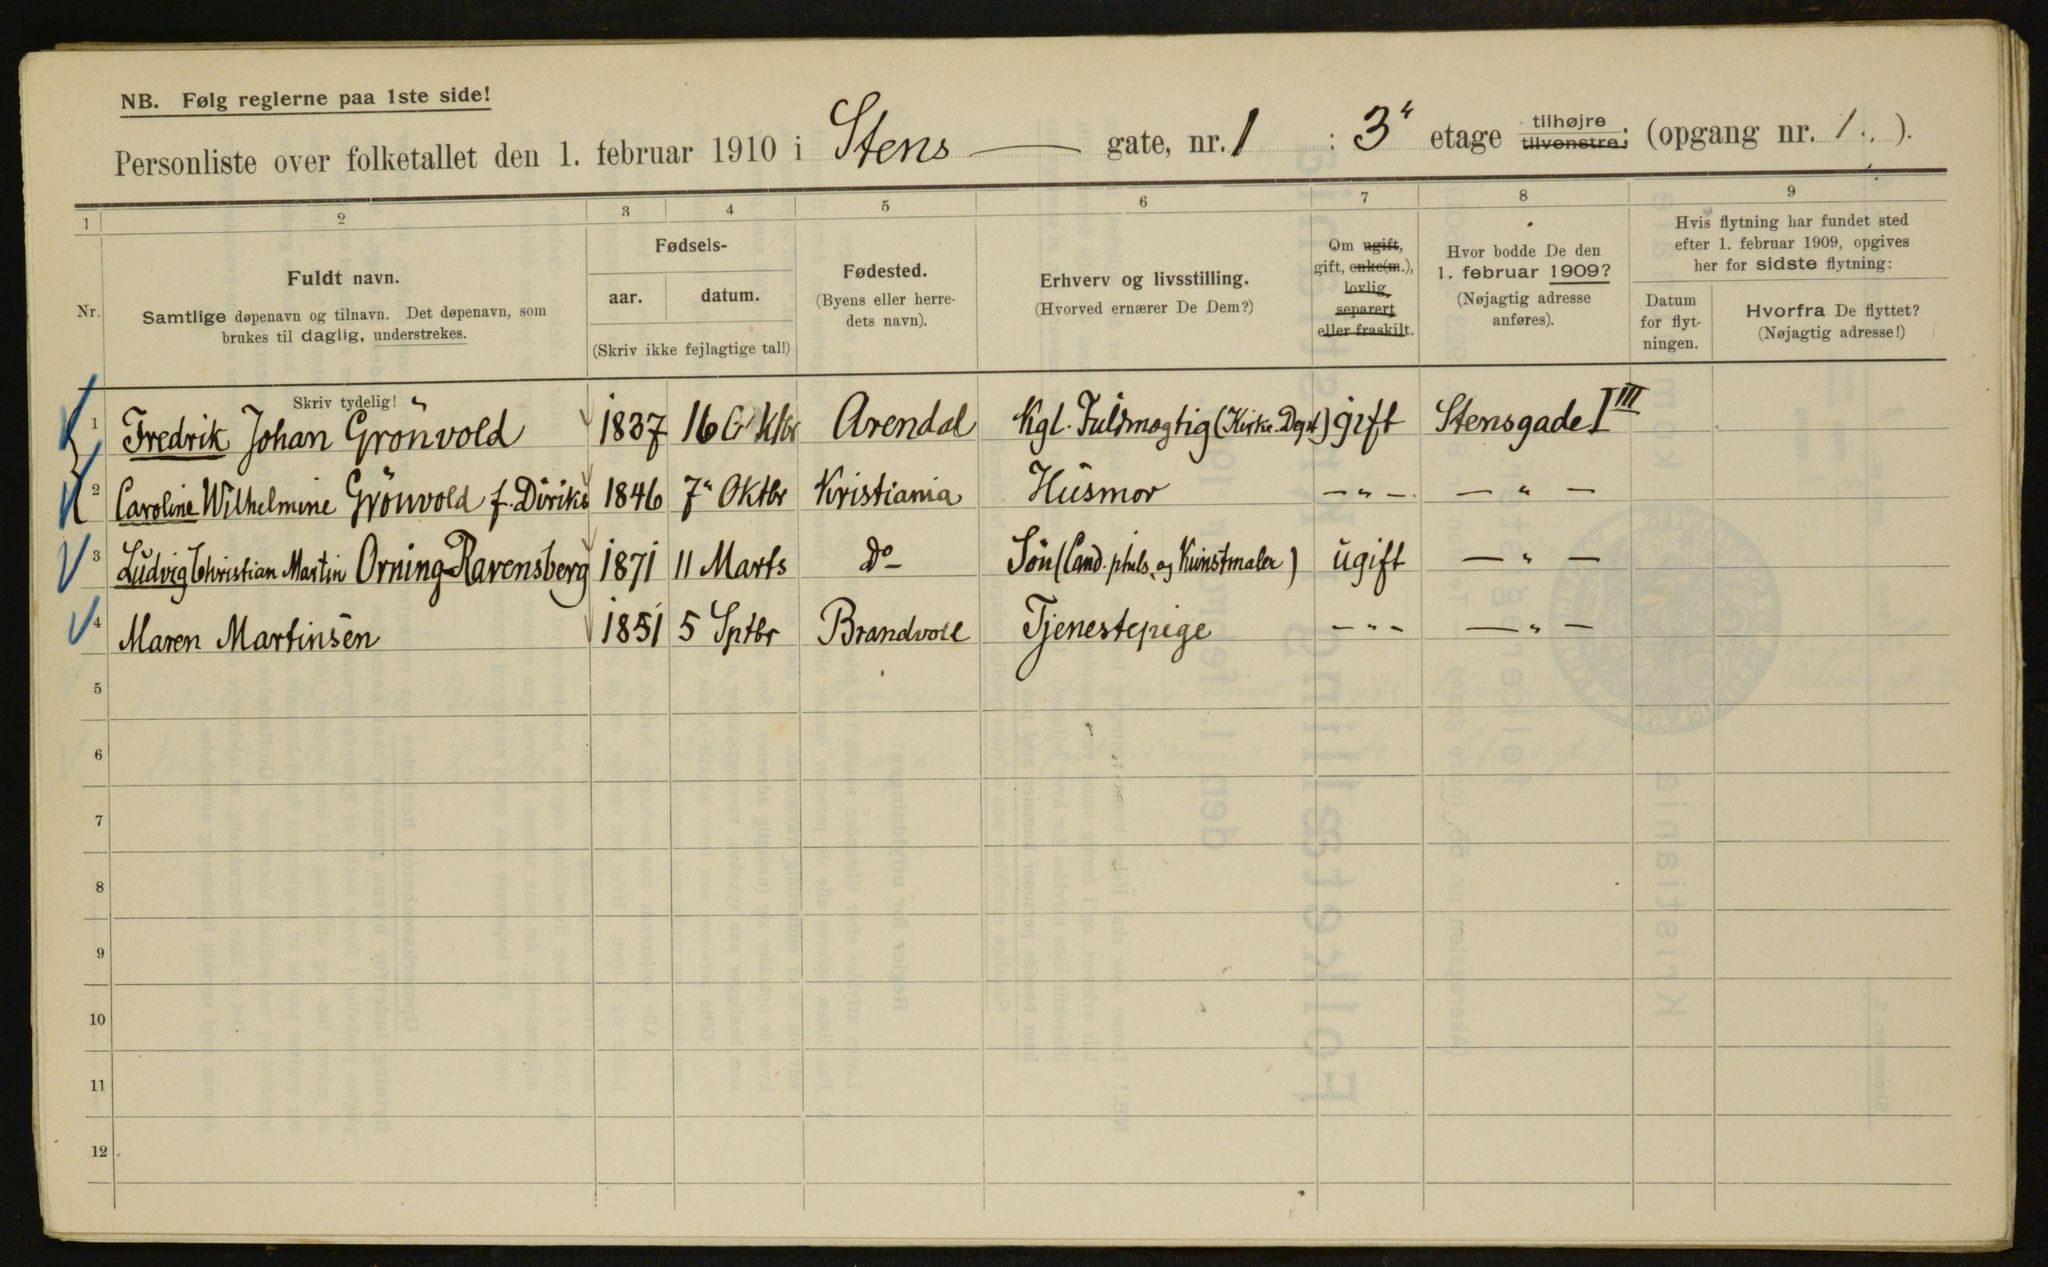 NB. Følg reglerne paa 1ste side!
Personliste over folketallet den 1. februar 1910 i Stens — gate, nr. 1 : 3" etage tilhøjre tilvenstre; (opgang nr. 1. ).
1 2 3 4 5 6 7 8 9
Nr.
Fuldt navn.
Samtlige døpenavn og tilnavn. Det døpenavn, som
brukes til daglig, understrekes.
Fødsels-
aar. datum.
(Skriv ikke fejlagtige tal!)
Fødested.
(Byens eller herre-
dets navn).
Erhverv og livsstilling.
(Hvorved ernærer De Dem?)
Om ugift,
gift, enke(m.),
lovlig
separert
eller fraskilt.
Hvor bodde De den
1. februar 1909?
(Nøjagtig adresse
anføres).
Hvis flytning har fundet sted
efter 1. februar 1909, opgives
her for sidste flytning:
Datum
for flyt-
ningen.
Hvorfra De flyttet?
(Nøjagtig adresse!)
Skriv tydelig!
1 Fredrik Johan Grönvold 1837 16 Oktbr Arendal Kgl. Fuldmægtig (Kirke-Dept) gift Stensgade I III
2 Caroline Wilhelmine Grönvold f. Diriks 1846 7" Oktbr Kristiania Husmor — " — — " —
3 Ludvig Christian Martin Orning-Ravensberg 1871 11 Marts Do Sön (Cand. phils. og Kunstmaler) ugift — " —
4 Maren Martinsen 1851 5 Sptbr Brandvold Tjenestepige — " — — " —
5
6
7
8
9
10
11
12